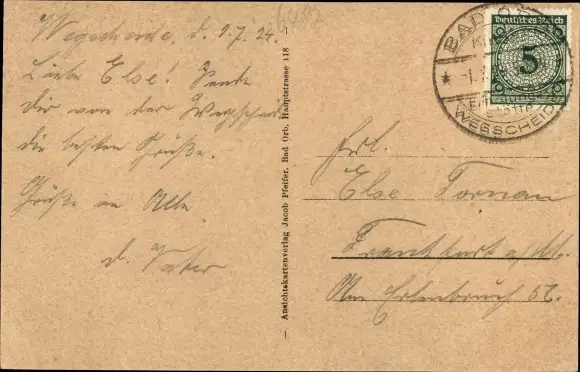 Wegscheide, d. 2.7.24.
Liebe Else! Sende
Dir von der Wegscheide
die besten Grüße.
Grüße an Alle
d. Vater
— Ansichtskartenverlag Jacob Pfeifer, Bad Orb, Hauptstrasse 118 —
BAD ORB
WEGSCHEIDE
Deutsches Reich
5
Frl.
Else Tornau
Frankfurt a/M.
Am Erlenbruch 52.